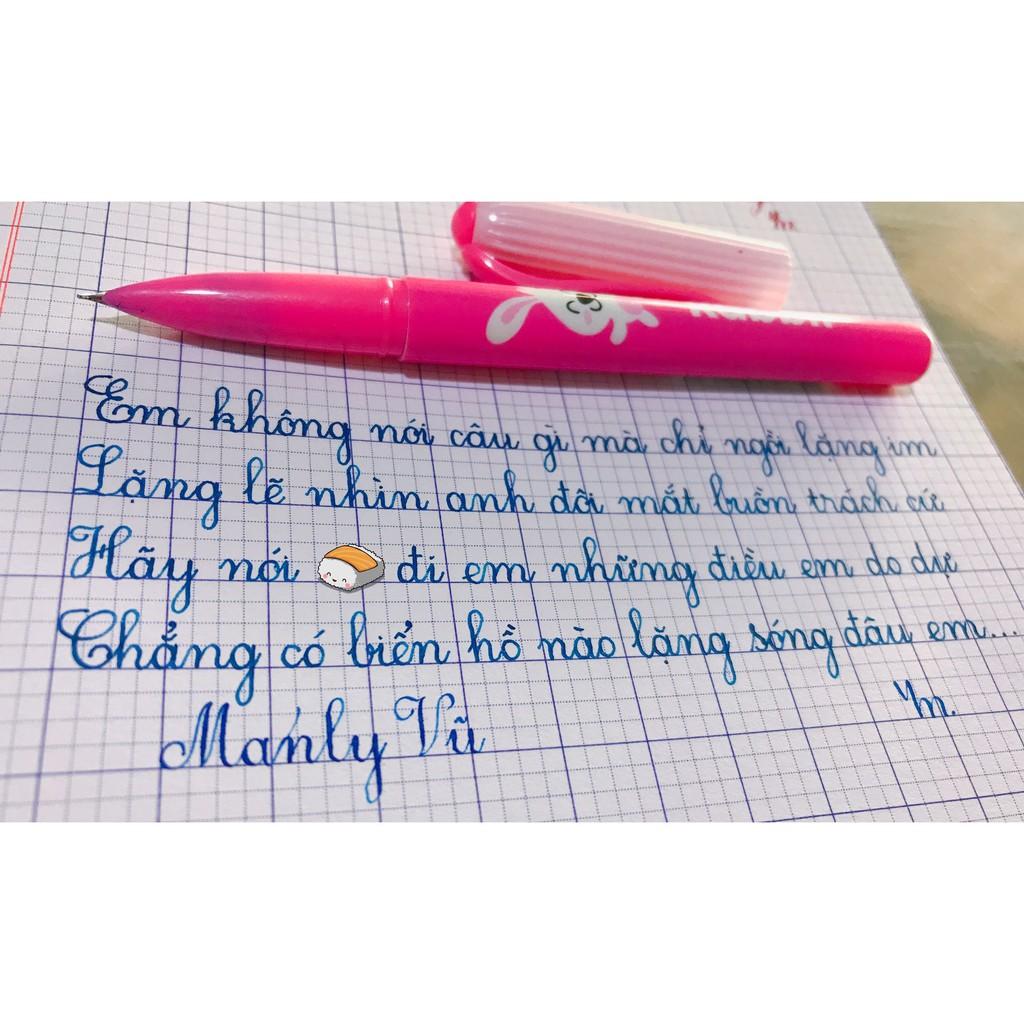 Em không nói câu gì mà chỉ ngồi lặng im
Lặng lẽ nhìn anh đôi mắt buồn trách cứ
Hãy nói đi em những điều em do dự
Chẳng có biển hồ nào lặng sóng đâu em...
Manly Vũ